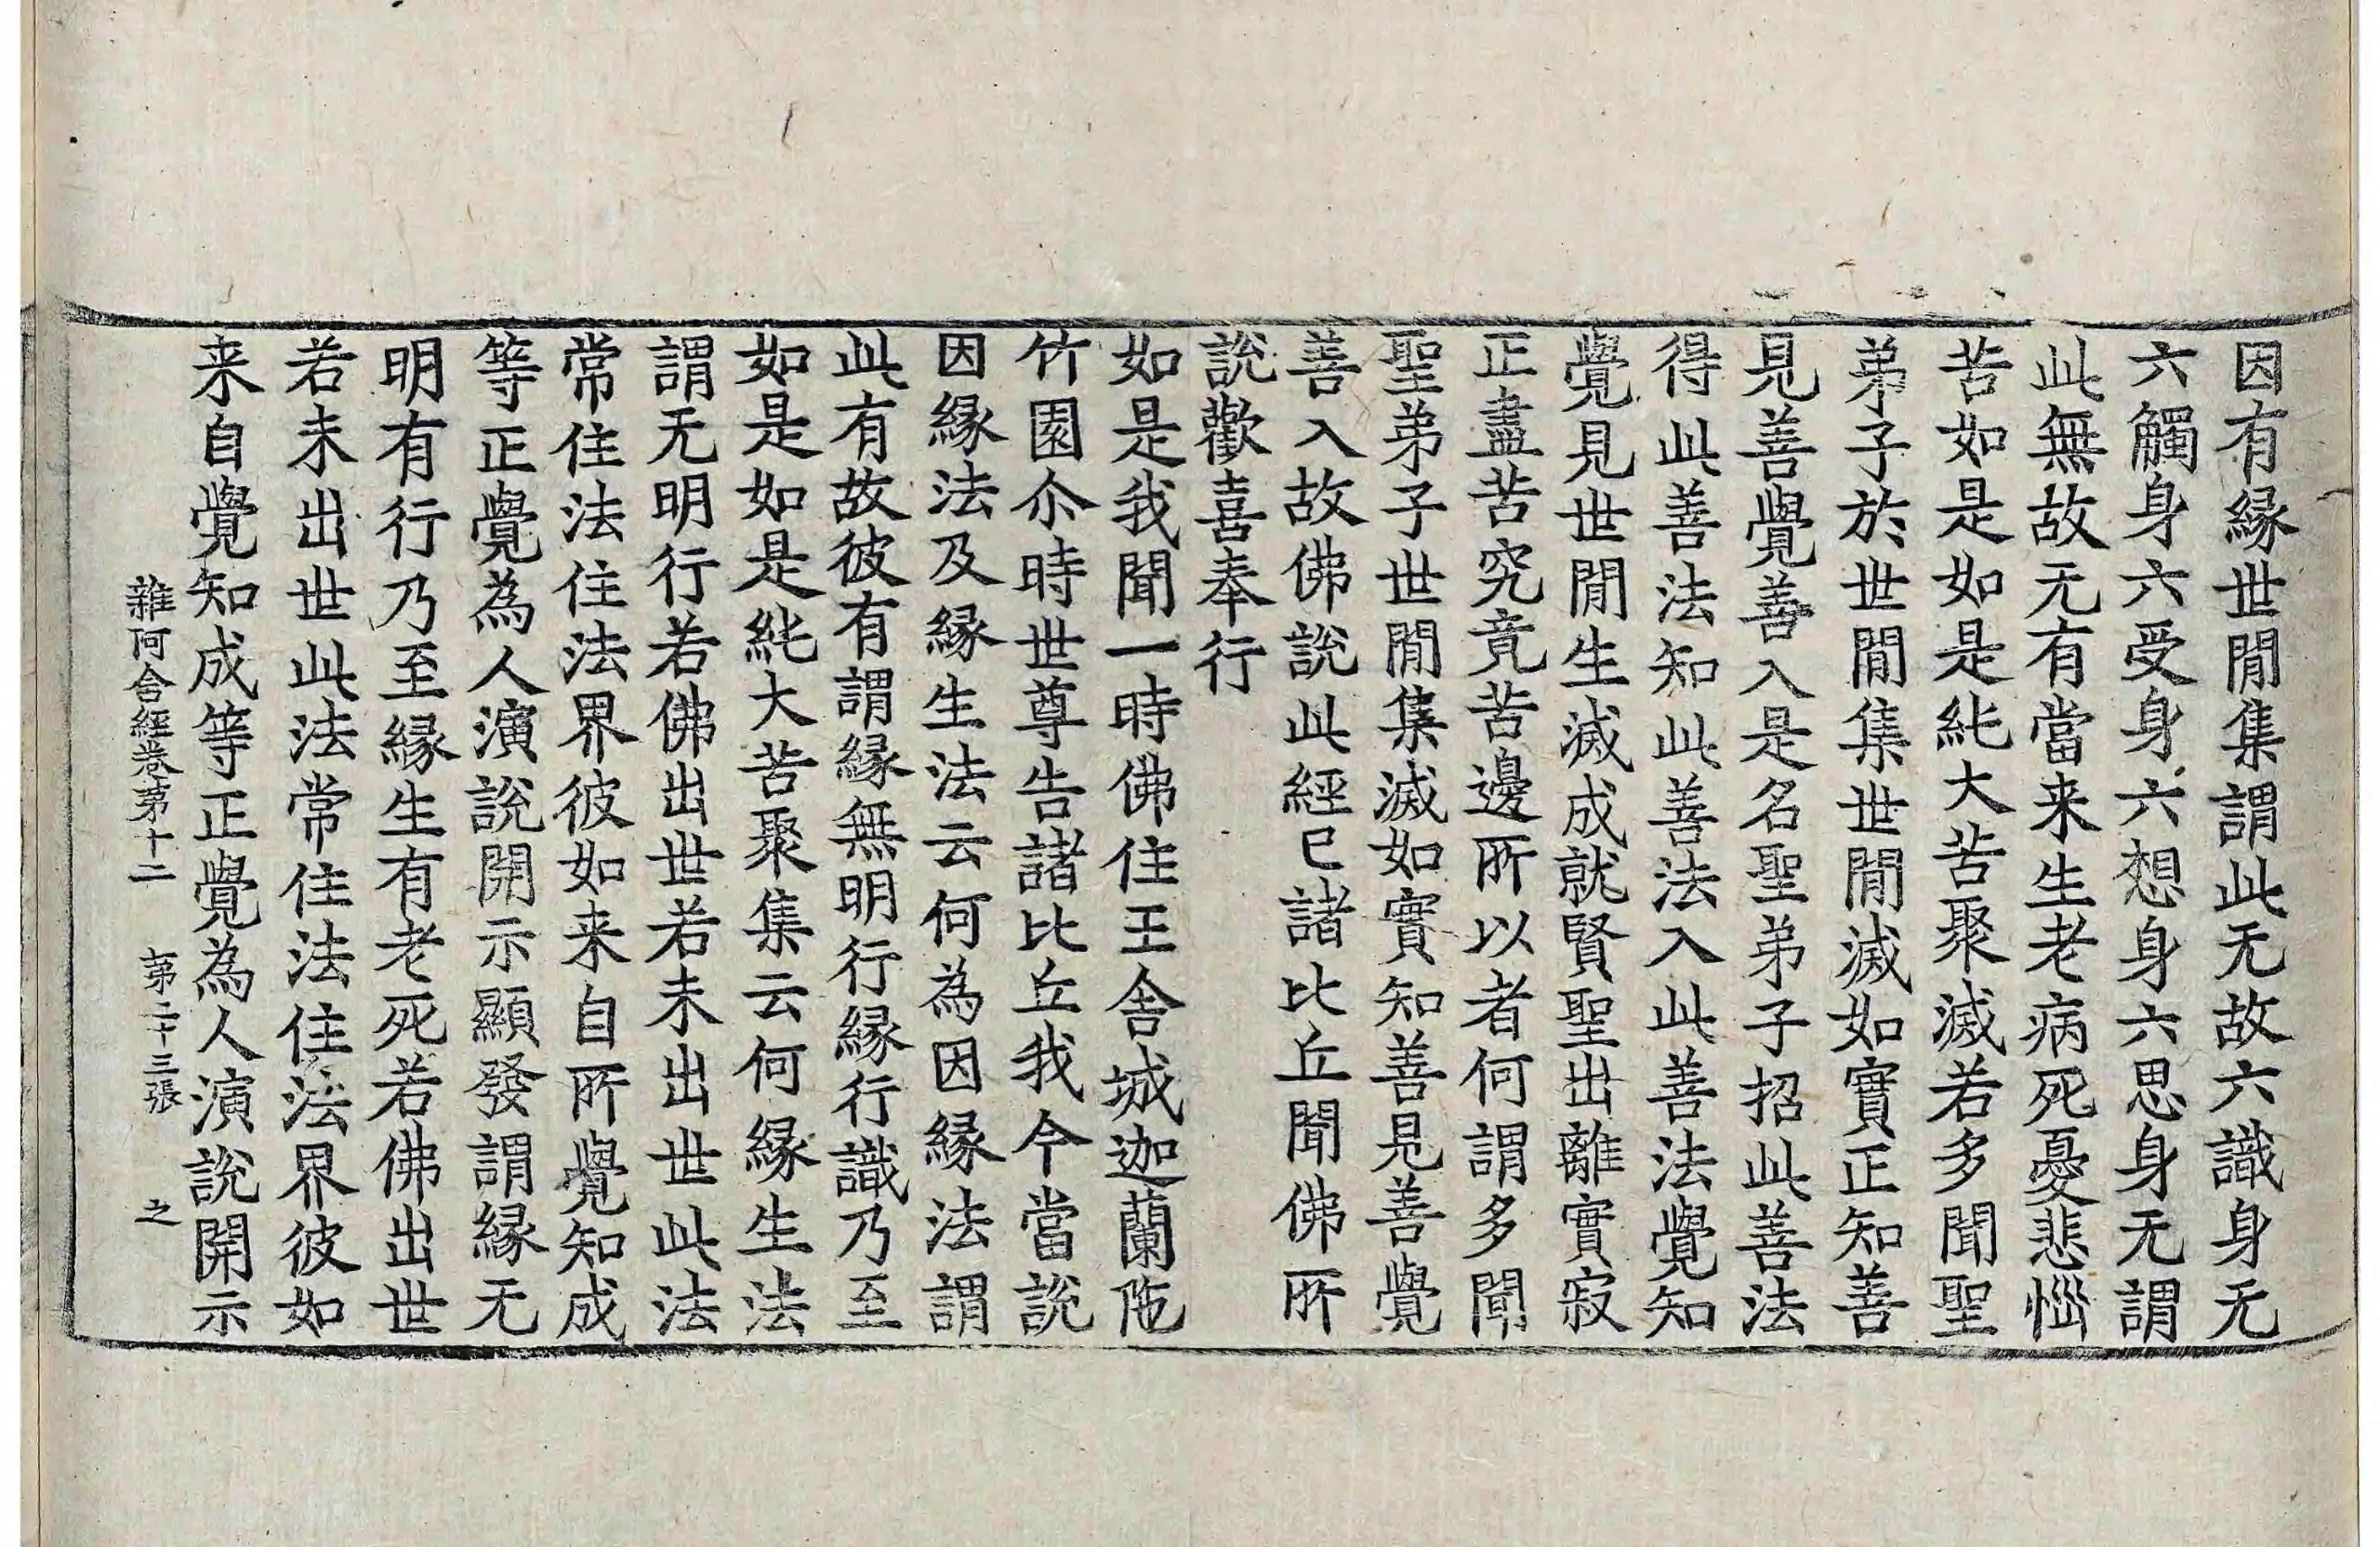 因有縁世閒集謂此无故六識身无
六觸身六受身六想身六思身无謂
此無故无有當来生老病死憂悲惱
苦如是如是純大苦聚滅若多聞聖
弟子於世閒集世閒滅如實正知善
見善覺善入是名聖弟子招此善法
得此善法知此善法入此善法覺知
覺見世閒生滅成就賢聖出離實寂
正盡苦究竟苦邊所以者何謂多聞
聖弟子世閒集滅如實知善見善覺
善入故佛說此經已諸比丘聞佛所
說歡喜奉行
如是我聞一時佛住王舍城迦蘭陁
竹園尒時世尊告諸比丘我今當說
因縁法及縁生法云何為因縁法謂
此有故彼有謂縁無明行縁行識乃至
如是如是純大苦聚集云何縁生法
謂无明行若佛出世若未出世此法
常住法住法界彼如来自所覺知成
等正覺為人演說開示顯發謂縁无
明有行乃至縁生有老死若佛出世
若未出世此法常住法住法界彼如
来自覺知成等正覺為人演說開示
雜阿含經卷第十二 第二十三張 之